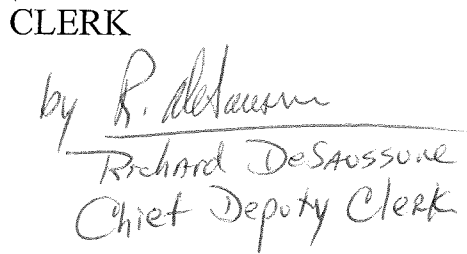 CLERK
by R. deSaussure
Richard DeSaussure
Chief Deputy Clerk